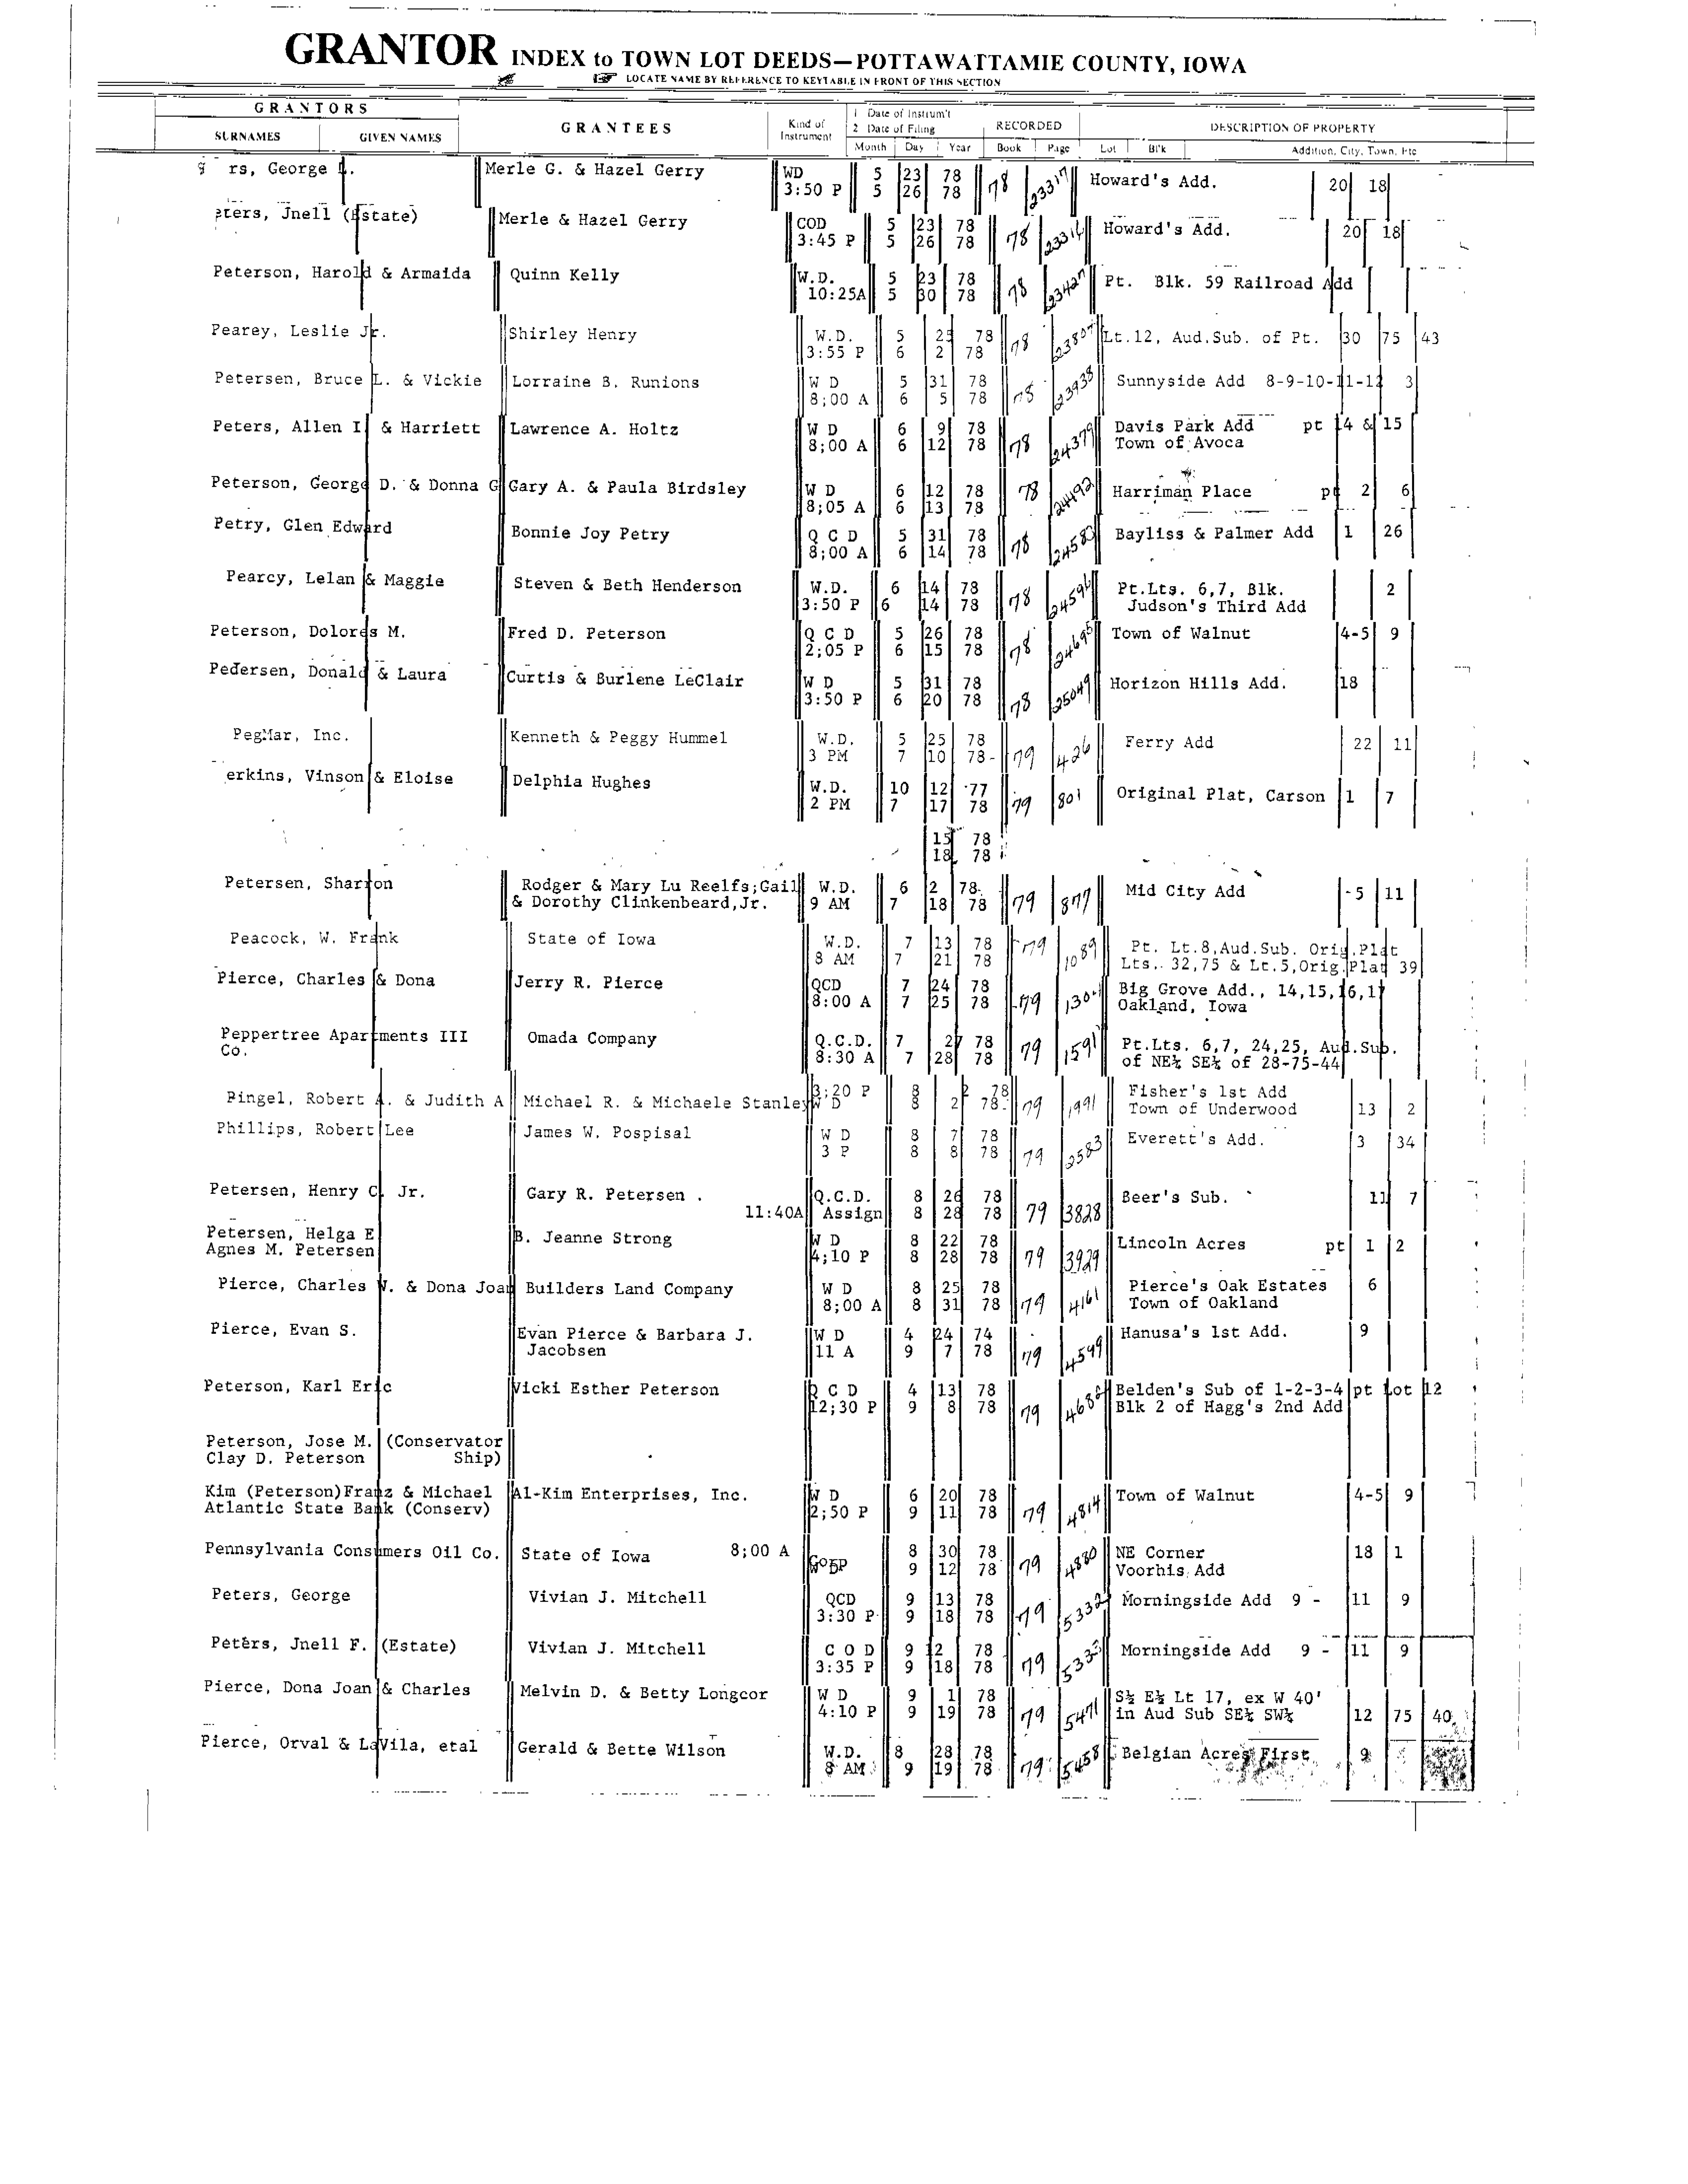 GRANTOR INDEX to TOWN LOT DEEDS—POTTAWATTAMIE COUNTY, IOWA
LOCATE NAME BY REFERENCE TO KEYTABLE IN FRONT OF THIS SECTION
GRANTORS GRANTEES Kind of Instrument 1 Date of Instrum't 2 Date of Filing RECORDED DESCRIPTION OF PROPERTY
SURNAMES GIVEN NAMES Month Day Year Book Page Lot Bl'k Addition, City, Town, Etc
rs, George Merle G. & Hazel Gerry WD 5 23 78 78 23317 Howard's Add. 20 18
3:50 P 5 26 78
eters, Jnell (Estate) Merle & Hazel Gerry COD 5 23 78 78 23316 Howard's Add. 20 18
3:45 P 5 26 78
Peterson, Harold & Armaida Quinn Kelly W.D. 5 23 78 78 23427 Pt. Blk. 59 Railroad Add
10:25A 5 30 78
Pearey, Leslie Jr. Shirley Henry W.D. 5 25 78 78 23807 Lt.12, Aud.Sub. of Pt. 30 75 43
3:55 P 6 2 78
Petersen, Bruce L. & Vickie Lorraine B. Runions W D 5 31 78 78 23938 Sunnyside Add 8-9-10-11-12 3
8;00 A 6 5 78
Peters, Allen I & Harriett Lawrence A. Holtz W D 6 9 78 78 24379 Davis Park Add pt 14 & 15
8;00 A 6 12 78 Town of Avoca
Peterson, George D. & Donna G Gary A. & Paula Birdsley W D 6 12 78 78 24492 Harriman Place pt 2 6
8;05 A 6 13 78
Petry, Glen Edward Bonnie Joy Petry Q C D 5 31 78 78 24580 Bayliss & Palmer Add 1 26
8;00 A 6 14 78
Pearcy, Lelan & Maggie Steven & Beth Henderson W.D. 6 14 78 78 24596 Pt.Lts. 6,7, Blk. 2
3:50 P 6 14 78 Judson's Third Add
Peterson, Dolores M. Fred D. Peterson Q C D 5 26 78 78 24695 Town of Walnut 4-5 9
2;05 P 6 15 78
Pedersen, Donald & Laura Curtis & Burlene LeClair W D 5 31 78 78 25049 Horizon Hills Add. 18
3:50 P 6 20 78
PegMar, Inc. Kenneth & Peggy Hummel W.D. 5 25 78 79 426 Ferry Add 22 11
3 PM 7 10 78
erkins, Vinson & Eloise Delphia Hughes W.D. 10 12 77 79 801 Original Plat, Carson 1 7
2 PM 7 17 78
15 78
18 78
Petersen, Sharron Rodger & Mary Lu Reelfs;Gail W.D. 6 2 78 79 877 Mid City Add -5 11
& Dorothy Clinkenbeard,Jr. 9 AM 7 18 78
Peacock, W. Frank State of Iowa W.D. 7 13 78 79 1089 Pt. Lt.8,Aud.Sub. Orig.Plat
8 AM 7 21 78 Lts. 32,75 & Lt.5,Orig.Plat 39
Pierce, Charles & Dona Jerry R. Pierce QCD 7 24 78 79 Big Grove Add., 14,15,16,17
8:00 A 7 25 78 Oakland, Iowa
Peppertree Apartments III Omada Company Q.C.D. 7 27 78 79 1591 Pt.Lts. 6,7, 24,25, Aud.Sub.
Co. 8:30 A 7 28 78 of NE¼ SE¼ of 28-75-44
3:20 P 8 2 78 Fisher's 1st Add
Pingel, Robert A. & Judith A Michael R. & Michaele Stanley W D 8 2 78 79 1991 Town of Underwood 13 2
Phillips, Robert Lee James W. Pospisal W D 8 7 78 79 2583 Everett's Add. 3 34
3 P 8 8 78
Petersen, Henry C. Jr. Gary R. Petersen . Q.C.D. 8 26 78 79 3828 Beer's Sub. 11 7
11:40A Assign 8 28 78
Petersen, Helga E B. Jeanne Strong W D 8 22 78 79 3929 Lincoln Acres pt 1 2
Agnes M. Petersen 4;10 P 8 28 78
Pierce, Charles W. & Dona Joan Builders Land Company W D 8 25 78 79 4161 Pierce's Oak Estates 6
8;00 A 8 31 78 Town of Oakland
Pierce, Evan S. Evan Pierce & Barbara J. W D 4 24 74 79 4599 Hanusa's 1st Add. 9
Jacobsen 11 A 9 7 78
Peterson, Karl Eric Vicki Esther Peterson Q C D 4 13 78 79 4682 Belden's Sub of 1-2-3-4 pt Lot 12
12;30 P 9 8 78 Blk 2 of Hagg's 2nd Add
Peterson, Jose M. (Conservator
Clay D. Peterson Ship)
Kim (Peterson)Franz & Michael Al-Kim Enterprises, Inc. W D 6 20 78 79 4814 Town of Walnut 4-5 9
Atlantic State Bank (Conserv) 2;50 P 9 11 78
Pennsylvania Consumers Oil Co. State of Iowa 8;00 A 8 30 78 79 4880 NE Corner 18 1
9 12 78 Voorhis Add
Peters, George Vivian J. Mitchell QCD 9 13 78 79 5332 Morningside Add 9 - 11 9
3:30 P 9 18 78
Peters, Jnell F. (Estate) Vivian J. Mitchell C O D 9 12 78 79 5333 Morningside Add 9 - 11 9
3:35 P 9 18 78
Pierce, Dona Joan & Charles Melvin D. & Betty Longcor W D 9 1 78 79 5471 S½ E½ Lt 17, ex W 40'
4:10 P 9 19 78 in Aud Sub SE¼ SW¼ 12 75 40
Pierce, Orval & LaVila, etal Gerald & Bette Wilson W.D. 8 28 78 79 5458 Belgian Acres First 9
8 AM 9 19 78